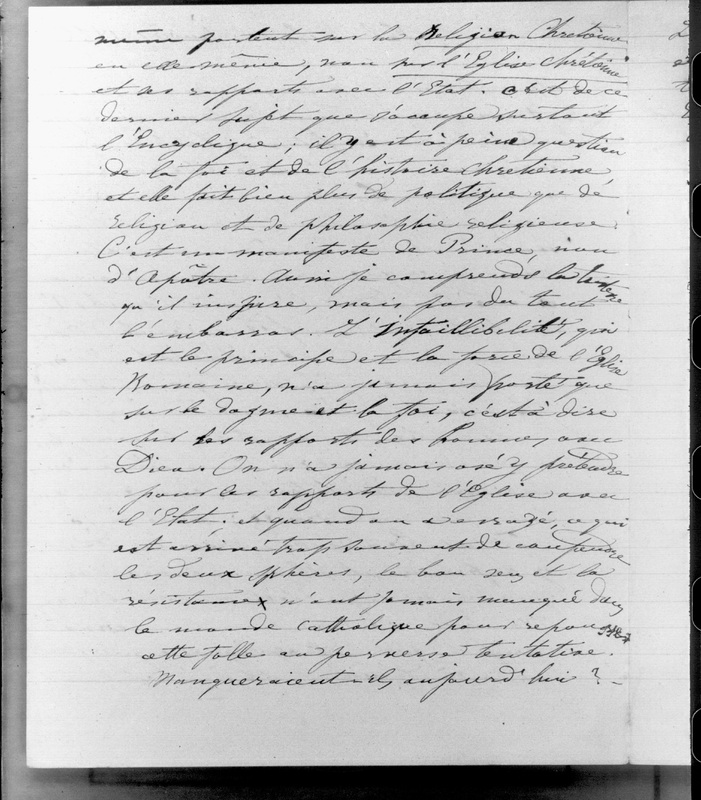 même portent sur la Religion Chretienne
en elle même, non sur l'Eglise chrétienne
et ses rapports avec l'Etat. C'est de ce
dernier sujet que s'occupe surtout
l'Encyclique; il y est à peine question
de la foi et de l'histoire chretienne
et elle fait bien plus de politique que de
religion et de philosophie religieuse.
C'est un manifeste de Prince, non
d'Apôtre. Aussi je comprends la tristesse
qu'il inspire, mais pas du tout
l'embarras. L'infaillibilité, qui
est le principe et la force de l'Eglise
Romaine, n'a jamais porté que
sur le dogme et la foi, c'est à dire
sur les rapports des hommes avec
Dieu. On n'a jamais osé y prétendre
pour les rapports de l'Eglise avec
l'Etat; et quand on a essayé, ce qui
est arrivé trop souvent de confondre
les deux sphères, le bon sens et la
résistance n'ont jamais manqué dans
le monde catholique pour repousser
cette folle ou perverse tentative.
Manqueraient-ils aujourd'hui ?